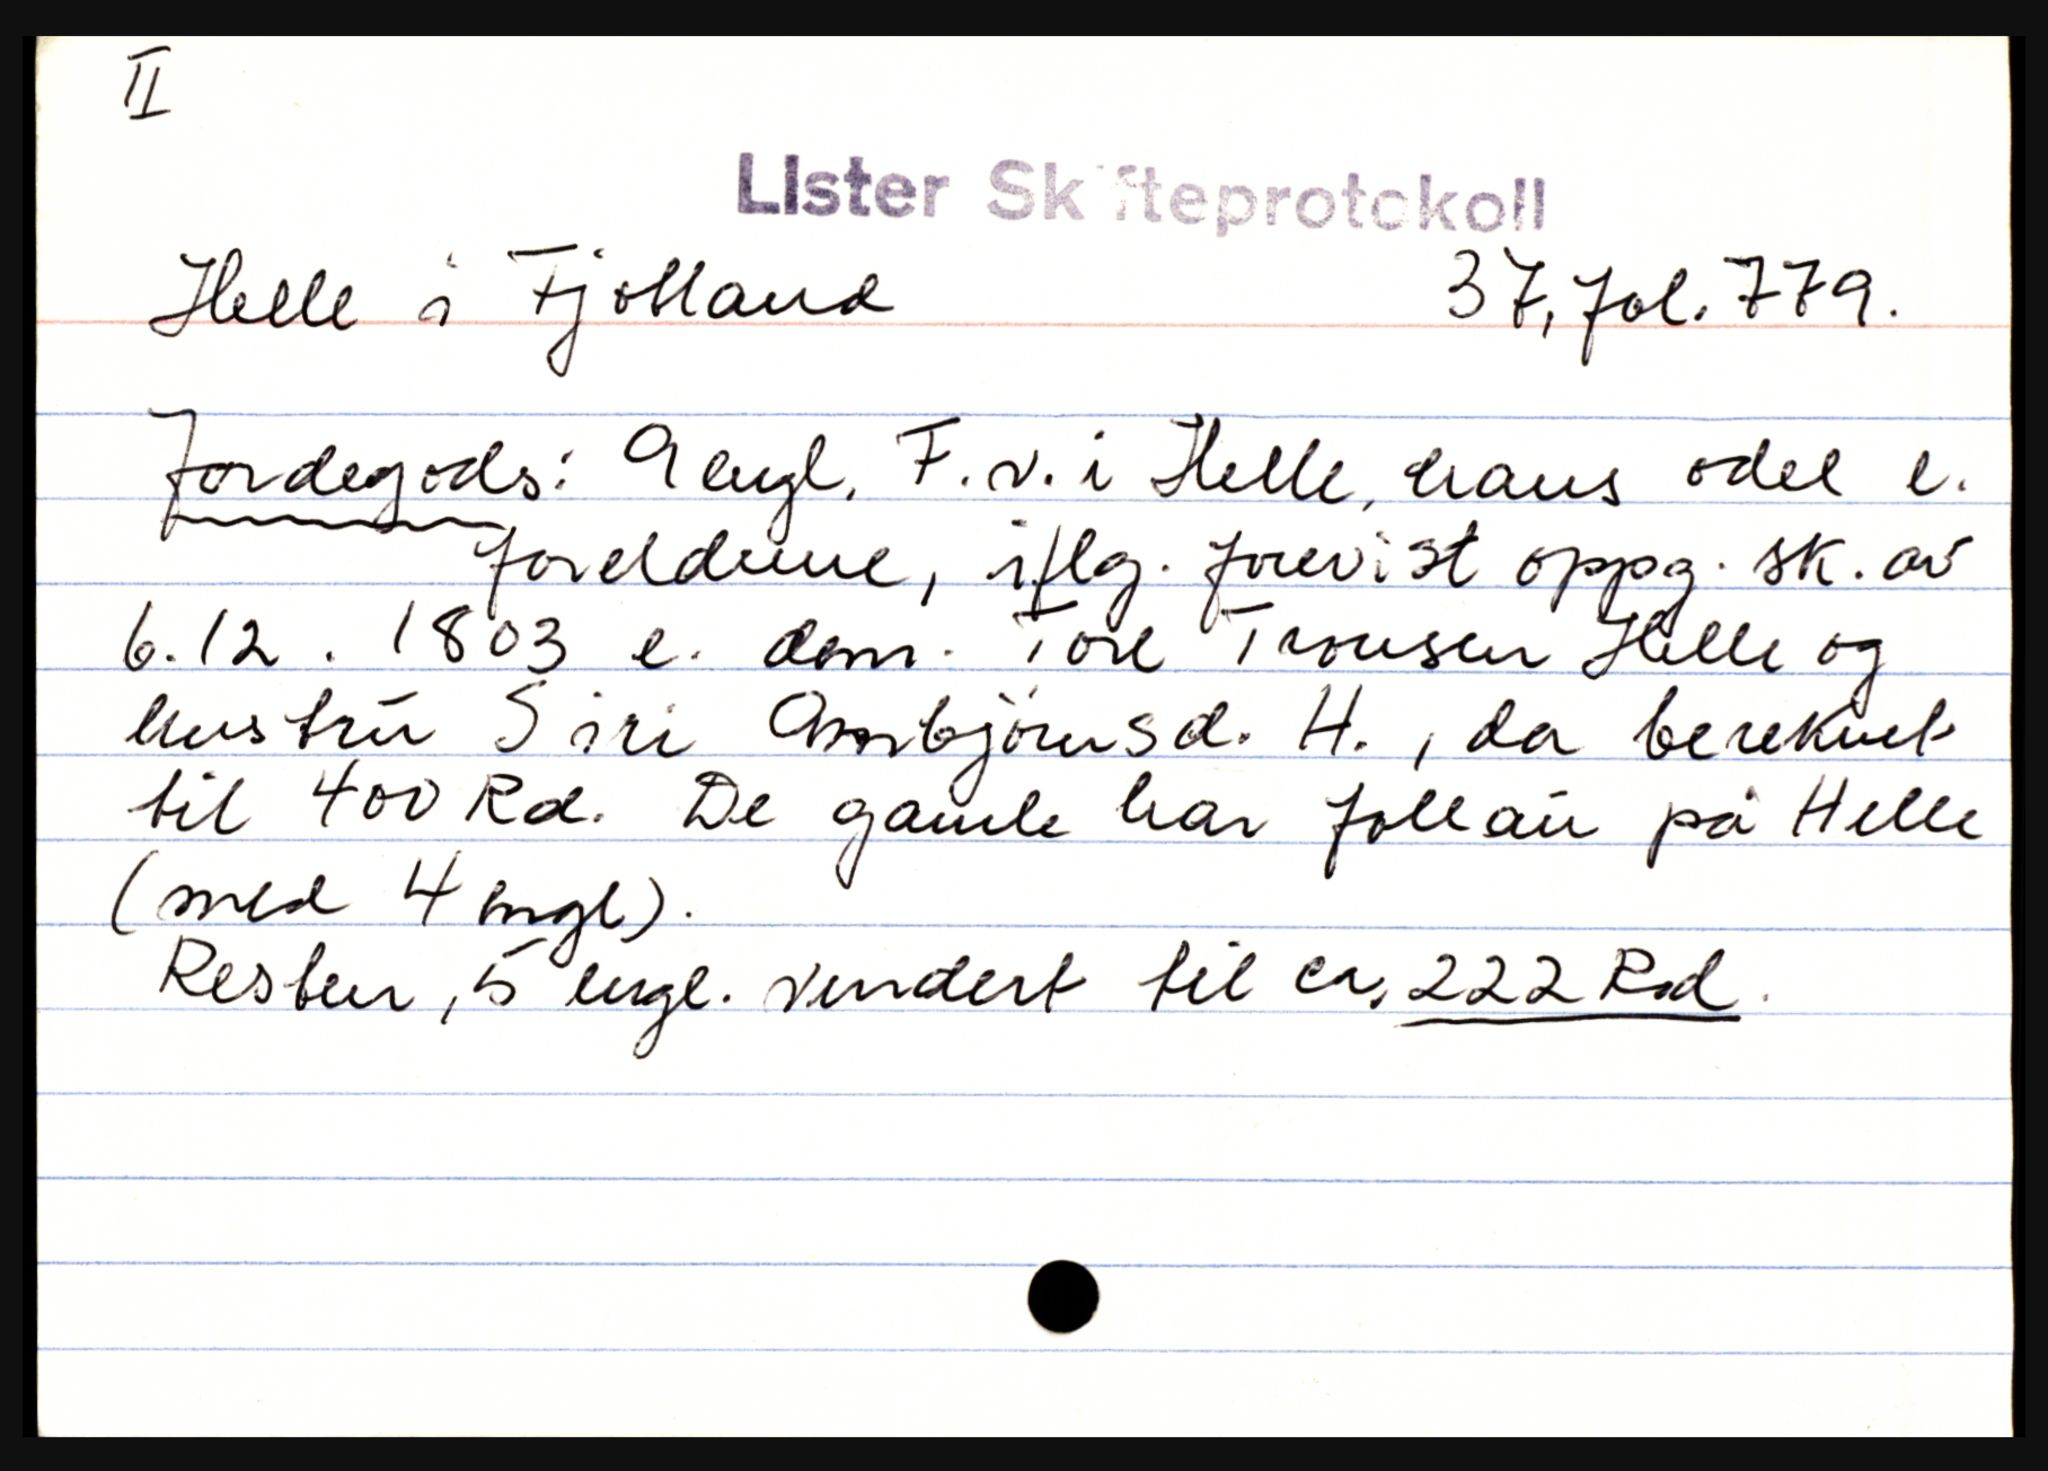 II
Lister Skifteprotokoll
Helle i Fjotland 37, fol. 779.
Jordegods: 9 engl. F. v. i Helle, hans odel e.
foreldrene, iflg. forevist oppg. sk. av
6.12. 1803 e. dem. Tore Tronsen Helle og
hustru Siri Ambjörnsd. H., da bereknet
til 400 Rd. De gamle har follau på Helle
(med 4 engl).
Resten, 5 engl. vurdert til ca. 222 Rd.